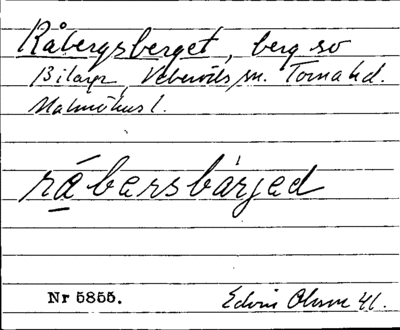 Råbergsberget, berg so
Bilarp, Veberöds sn. Torna hd.
Malmöhus l.
råbersbärjed
Nr 5855.
Edvin Olsson 41.